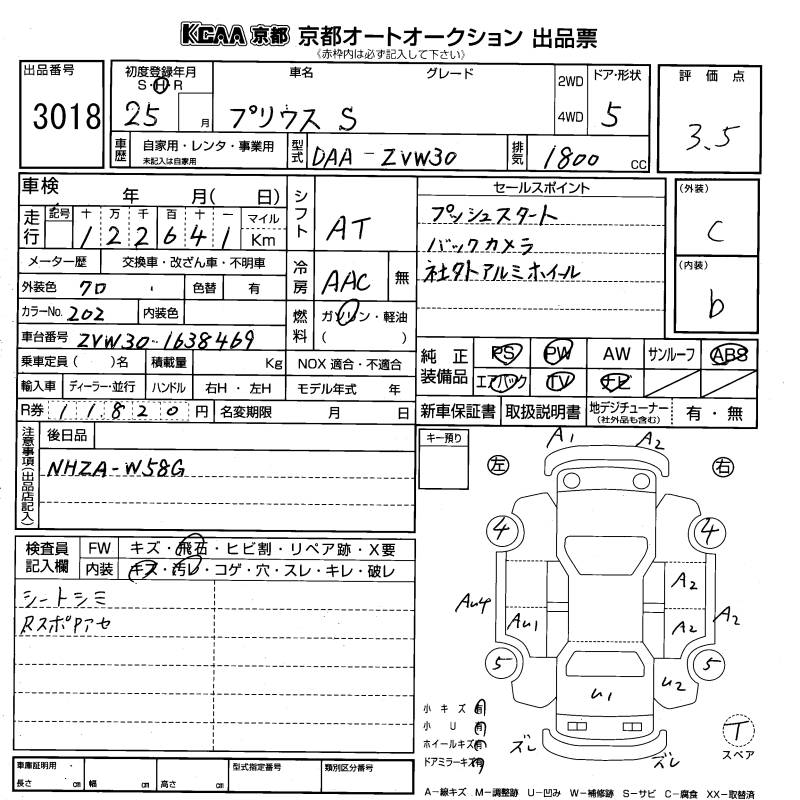 KCAA 京都 京都オートオークション 出品票
《赤枠内は必ず記入して下さい》
出品番号
3018
初度登録年月
S・H・R
25 月
車名 グレード
プリウス S
2WD
4WD
ドア・形状
5
評価点
3.5
車歴 自家用・レンタ・事業用
未記入は自家用
型式 DAA-ZVW30
排気 1800 cc
車検 年 月( 日)
走行 記号 十 万 千 百 十 一
122641
マイル
Km
メーター歴 交換車・改ざん車・不明車
外装色 クロ 色替 有
カラーNo. 202 内装色
車台番号 ZVW30-1638469
乗車定員( )名 積載量 Kg NOX 適合・不適合
輸入車 ディーラー・並行 ハンドル 右H・左H モデル年式 年
R券 11820 円 名変期限 月 日
シフト AT
冷房 AAC 無
燃料 ガソリン・軽油
( )
セールスポイント
プッシュスタート
バックカメラ
社外アルミホイール
(外装)
C
(内装)
b
純正装備品 PS PW AW サンルーフ ABS
エアバック TV ナビ
新車保証書 取扱説明書 地デジチューナー
(社外品も含む) 有・無
注意事項(出品店記入)
後日品
NHZA-W58G
検査員記入欄
FW キズ・飛石・ヒビ割・リペア跡・X要
内装 キズ・汚レ・コゲ・穴・スレ・キレ・破レ
シートシミ
RスポPアセ
キー預り
左 右
A1 A2
4 4
A2
Au4 Au1 A2 A2
5 5
U1 U2
小キズ 有
小U 有
ホイールキズ 有
ドアミラーキズ 有
ズレ ズレ
T
スペア
車庫証明用
長さ cm 幅 cm 高さ cm
型式指定番号 類別区分番号
A−線キズ M−調整跡 U−凹み W−補修跡 S−サビ C−腐食 XX−取替済